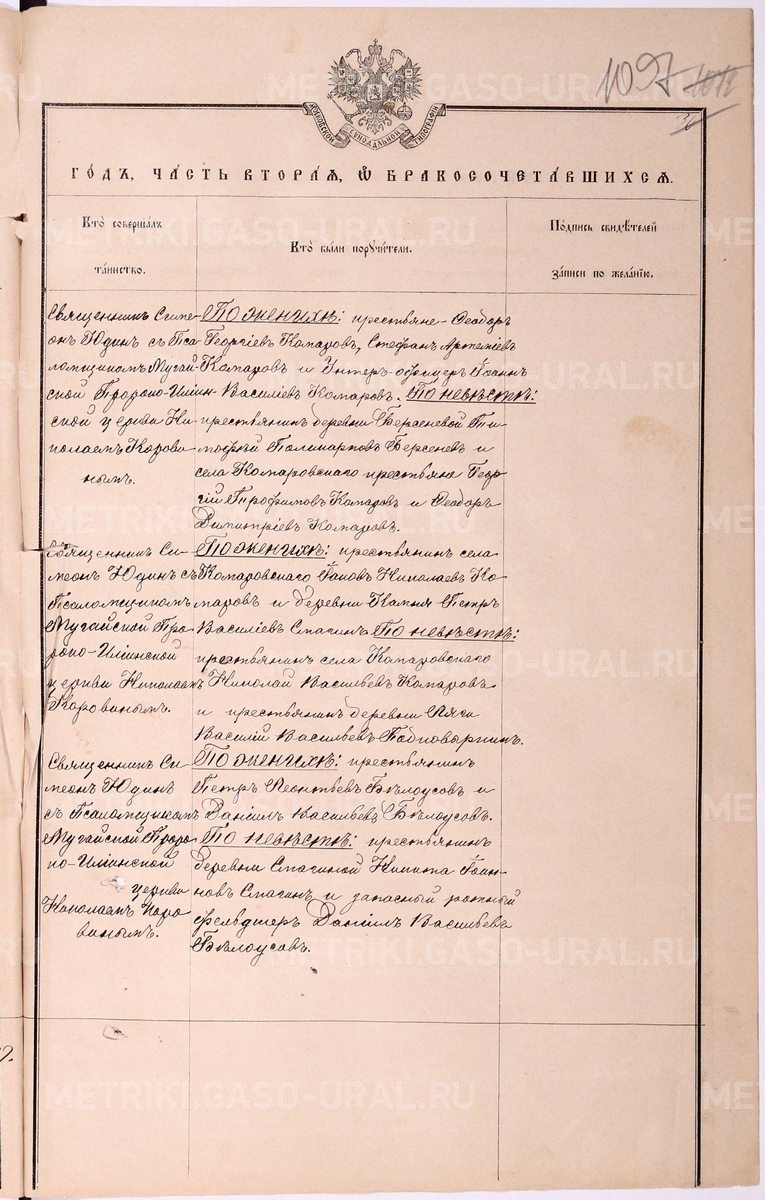 1097 1012
МОСКОВСКОЙ СѴНОДАЛЬНОЙ ТИПОГРАФІИ
ГО́ДЪ, ЧА́СТЬ ВТОРА́Я, Ѡ҆ БРАКОСОЧЕТА́ВШИХСЯ.
Кто̀ соверша́лъ
та́инство.
Кто̀ бы́ли поручи́тели.
По́дпись свидѣ́телей
за́писи по жела́нію.
Священникъ Симе-
онъ Юдинъ съ Пса
ломщикомъ Мугай-
ской Пророко-Илiин-
ской церкви Ни-
колаемъ Корови-
нымъ.
По женихѣ: крестьяне Ѳеодоръ
Георгіевъ Комаровъ, Стефанъ Артеміевъ
Комаровъ и Унтеръ-офицеръ Іоаннъ
Василіевъ Комаровъ. По невѣстѣ:
крестьянинъ деревни Берсеневой Ти-
мофей Поликарповъ Берсеневъ и
села Комаровскаго крестьяне Геор-
гій Трофимовъ Комаровъ и Ѳеодоръ
Димитріевъ Комаровъ.
Священникъ Си-
меонъ Юдинъ съ
Псаломщикомъ
Мугайской Про-
роко-Илiинской
церкви Николаемъ
Коровинымъ.
По женихѣ: крестьянинъ села
Комаровскаго Іаковъ Николаевъ Ко-
маровъ и деревни Камня Петръ
Василіевъ Спасинъ По невѣстѣ:
крестьянинъ села Комаровскаго
Николай Васильевъ Комаровъ
и крестьянинъ деревни
Василій Васильевъ
Священникъ Си-
меонъ Юдинъ
съ Псаломщикомъ
Мугайской Проро-
ко-Илiинской
церкви
Николаемъ Коро
винымъ.
По женихѣ: крестьянинъ
Петръ Леонтьевъ Бѣлоусовъ и
Даніилъ Васильевъ Бѣлоусовъ.
По невѣстѣ: крестьянинъ
деревни Спасиной Никита Іоан-
новъ Спасинъ и запасный ротный
фельдшеръ Даніилъ Васильевъ
Бѣлоусовъ.
METRIKI.GASO-URAL.RU